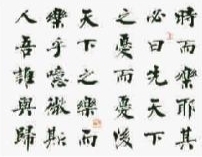 時而樂耶其
必曰先天下
之憂而憂後
天下之樂而
樂乎噫微斯
人吾誰與歸